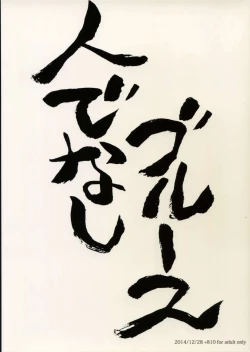 人でなし
ブルース
2014/12/28 +810 for adult only